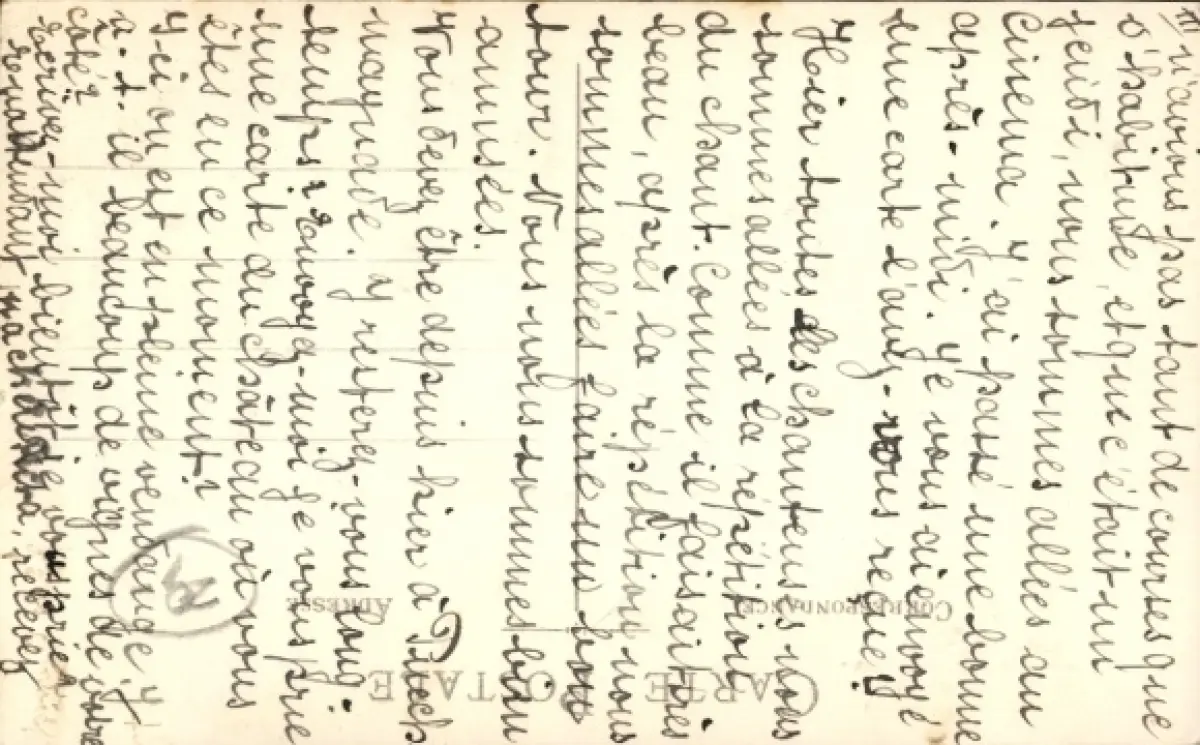 III n'avions pas tant de courses que
d'habitude, et que c'était un
jeudi, nous sommes allées au
Cinema. J'ai passé une bonne
après-midi. Je vous ai envoyé
une carte l'avez-vous reçue?
Hier toutes les chanteuses nous
sommes allées à la répétition
du chant. Comme il faisait très
beau, après la répétition nous
sommes allées faire un bon
tour. Nous nous sommes bien
amusées.
Vous devez être depuis hier à Puech
maynade. Y resterez-vous long-
temps? Envoyez-moi je vous prie
une carte du Château où vous
êtes en ce moment?
Ici on est en pleine vendange. Y
a-t-il beaucoup de vignes de votre
côté?
Ecrivez-moi bientôt je vous prie.
En attendant, ma, recevez
CARTE POSTALE
CORRESPONDANCE
ADRESSE